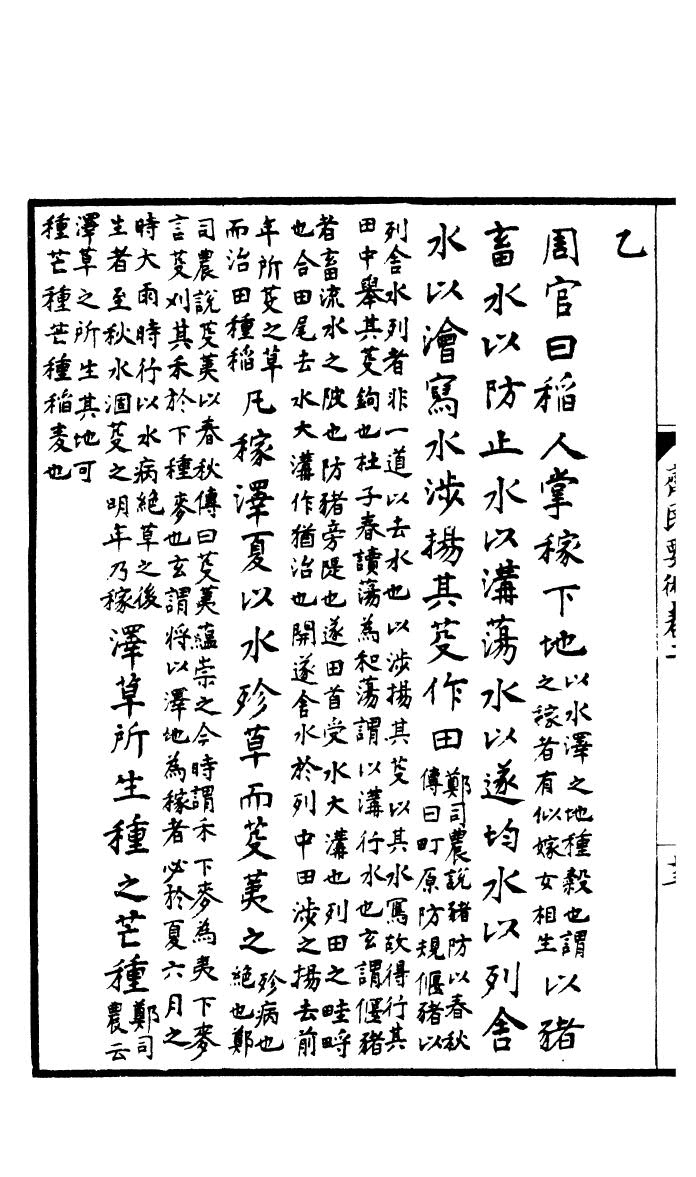 齊民要術卷二
乙
周官曰稻人掌稼下地以水澤之地種穀也謂之稼者有似嫁女相生以豬
畜水以防止水以溝蕩水以遂均水以列舍
水以澮寫水涉揚其芟作田鄭司農說豬防以春秋傳曰町原防規偃豬以
列舍水列者非一道以去水也以涉揚其芟以其水寫故得行其
田中舉其芟鉤也杜子春讀蕩為和蕩謂以溝行水也玄謂偃豬
者畜流水之陂也防豬旁隄也遂田首受水大溝也列田之畦㽟
也合田尾去水大溝作猶治也開遂舍水於列中田涉之揚去前
年所芟之草而治田種稻凡稼澤夏以水殄草而芟荑之殄病也絕也鄭
司農說芟荑以春秋傳曰芟荑蘊崇之今時謂禾下麥為夷下麥
言芟刈其禾於下種麥也玄謂將以澤地為稼者必於夏六月之
時大雨時行以水病絕草之後生者至秋水涸芟之明年乃稼澤草所生種之芒種鄭司農云
澤草之所生其地可
種芒種芒種稻麦也